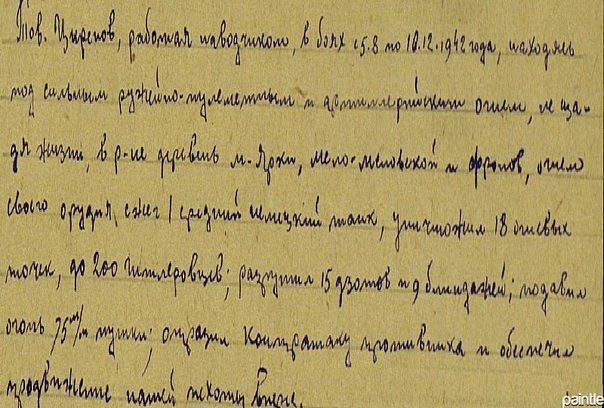 Тов. Цыренов, работая наводчиком, в боях с 5.8 по 18.12.1942 года, находясь
под сильным ружейно-пулеметным и артиллерийским огнем, не ща-
дя жизни, в р-не деревень М-Ярки, Мело-Меловской и Фролов, огнем
своего орудия, сжег 1 средний немецкий танк, уничтожил 18 огневых
точек, до 200 гитлеровцев; разрушил 15 дзотов и 9 блиндажей; подавил
огонь 75 м/м пушки; отразил контратаку противника и обеспечил
продвижение нашей пехоты вперед.
paintle